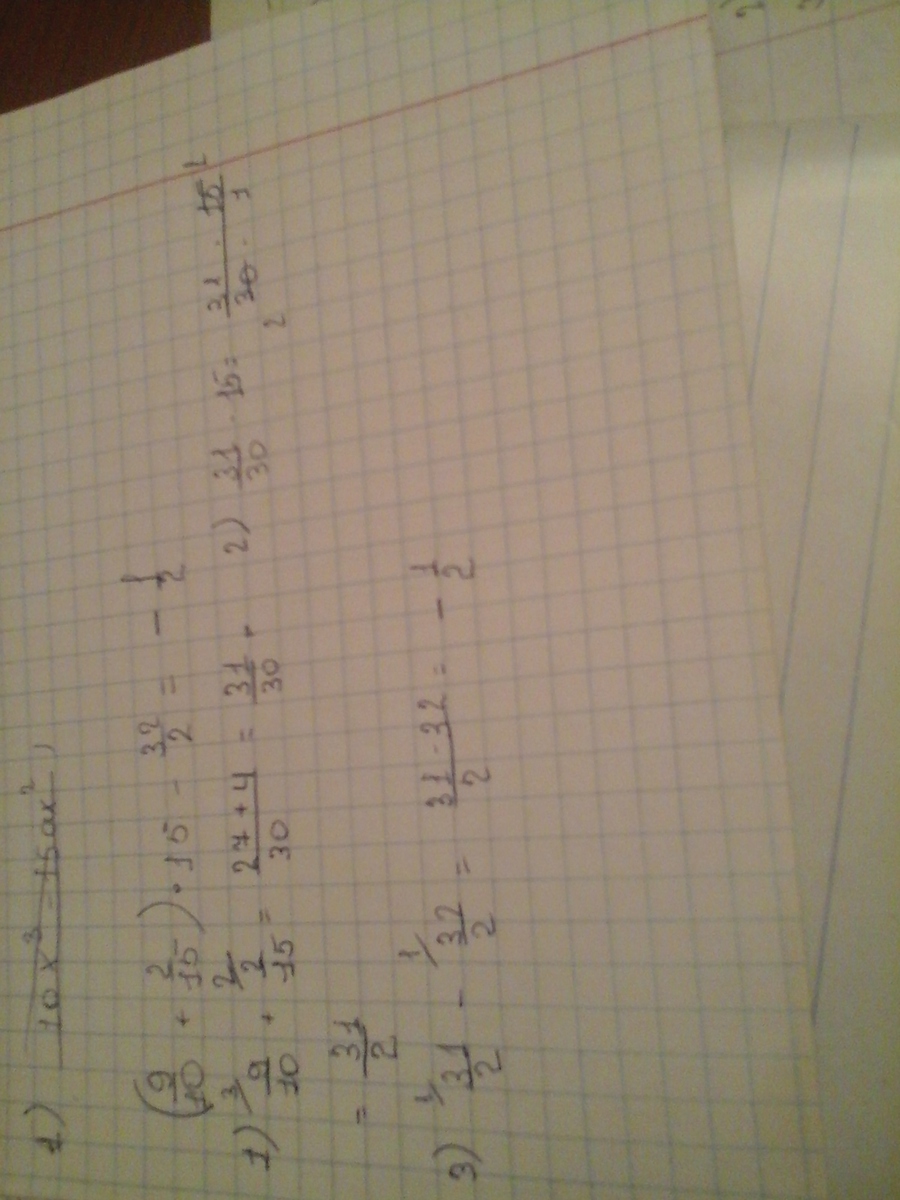 1) 10x³ - 15ax²)
(9/10 + 2/15) · 15 - 32/2 = - 1/2
1) ³⁄ 9/10 + ²⁄ 2/15 = 27+4/30 = 31/30 · 2) 31/30 · 15 = 31 · 15 ¹/30 · 1 2
= 31/2
3) ¹⁄ 31/2 - ¹⁄ 32/2 = 31-32/2 = - 1/2